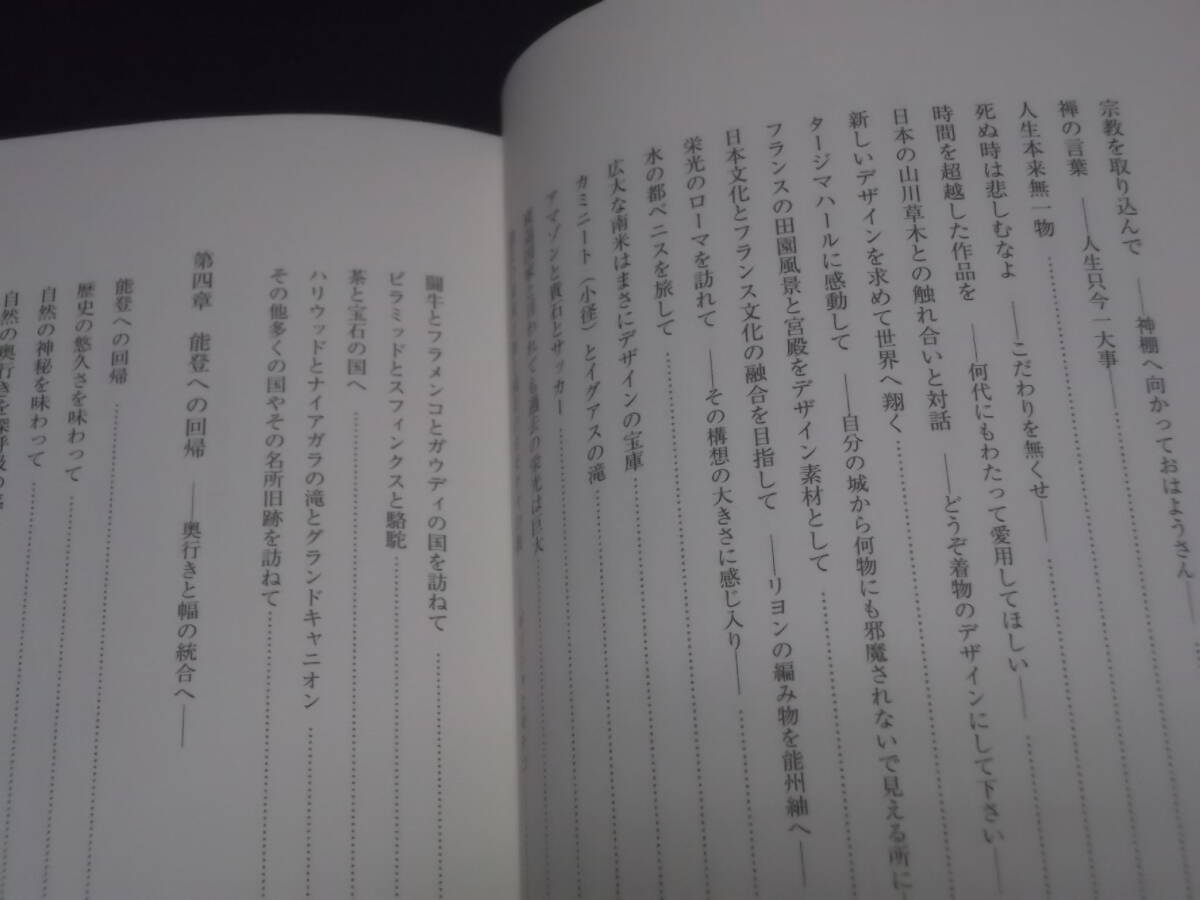 宗教を取り込んで ――神棚へ向かっておはようさん――
禅の言葉 ――人生只今一大事――
人生本来無一物
死ぬ時は悲しむなよ ――こだわりを無くせ――
時間を超越した作品を ――何代にもわたって愛用してほしい――
日本の山川草木との触れ合いと対話 ――どうぞ着物のデザインにして下さい――
新しいデザインを求めて世界へ翔く
タージマハールに感動して ――自分の城から何物にも邪魔されないで見える所に
フランスの田園風景と宮殿をデザイン素材として
日本文化とフランス文化の融合を目指して ――リヨンの編み物を能州紬へ――
栄光のローマを訪れて ――その構想の大きさに感じ入り――
水の都ベニスを旅して
広大な南米はまさにデザインの宝庫
カミニート（小径）とイグアスの滝
アマゾンと貴石とサッカー
過去の栄光は巨大
闘牛とフラメンコとガウディの国を訪ねて
ピラミッドとスフィンクスと駱駝
茶と宝石の国へ
ハリウッドとナイアガラの滝とグランドキャニオン
その他多くの国やその名所旧跡を訪ねて
第四章 能登への回帰 ――奥行きと幅の統合へ――
能登への回帰
歴史の悠久さを味わって
自然の神秘を味わって
自然の奥行きを深呼吸の